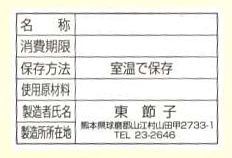 名 称
消費期限
保存方法 室温で保存
使用原材料
製造者氏名 東 節 子
製造所所在地 熊本県球磨郡山江村山田甲2733-1
TEL 23-2646